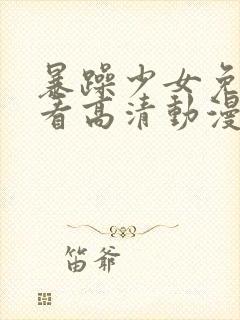 暴躁少女免
看高清動漫
笛爷